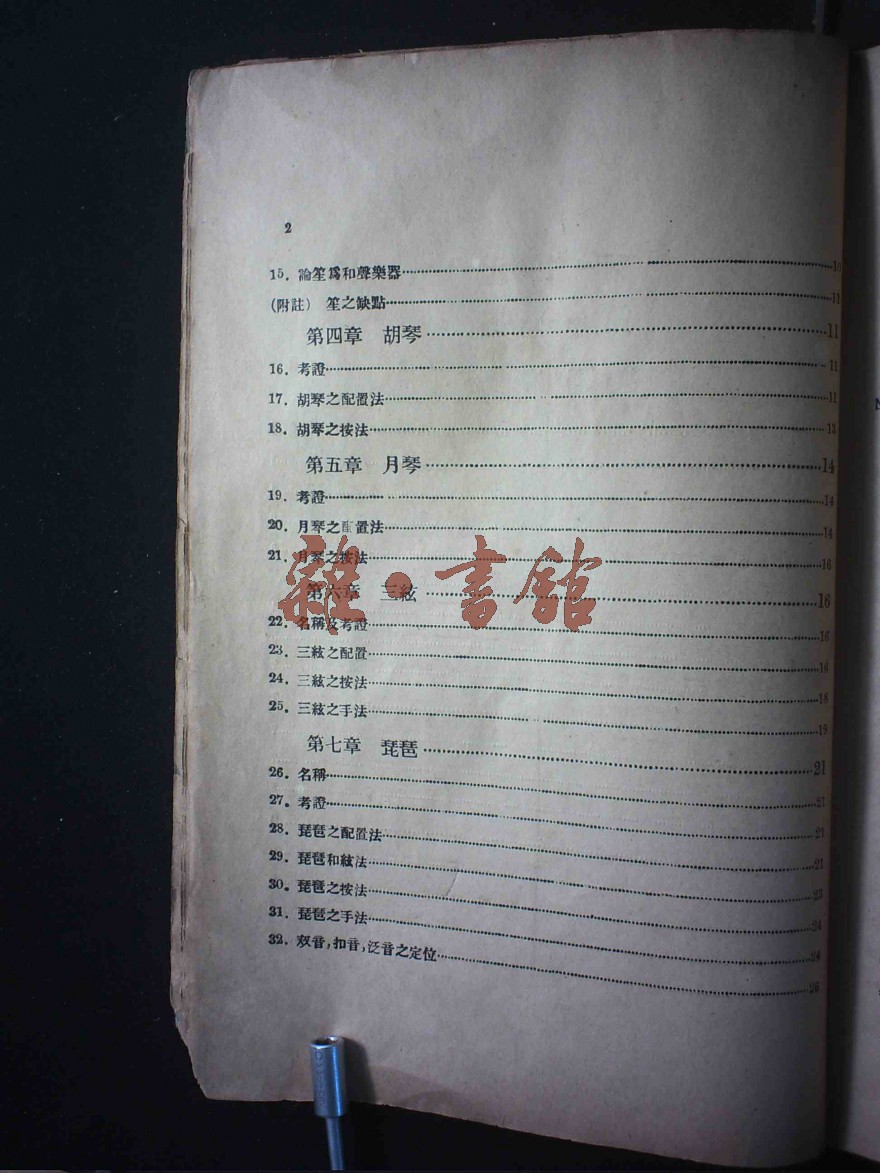 2
15. 論笙爲和聲樂器 10
(附註) 笙之缺點
第四章 胡琴 11
16. 考證 11
17. 胡琴之配置法 11
18. 胡琴之按法 13
第五章 月琴 14
19. 考證 14
20. 月琴之配置法 14
21. 月琴之按法 16
第六章 三絃 16
22. 名稱及考證 16
23. 三絃之配置
24. 三絃之按法 18
25. 三絃之手法 19
第七章 琵琶 21
26. 名稱 21
27. 考證 21
28. 琵琶之配置法 21
29. 琵琶和絃法 21
30. 琵琶之按法 23
31. 琵琶之手法 24
32. 双音，扣音，泛音之定位 26
雜·書館